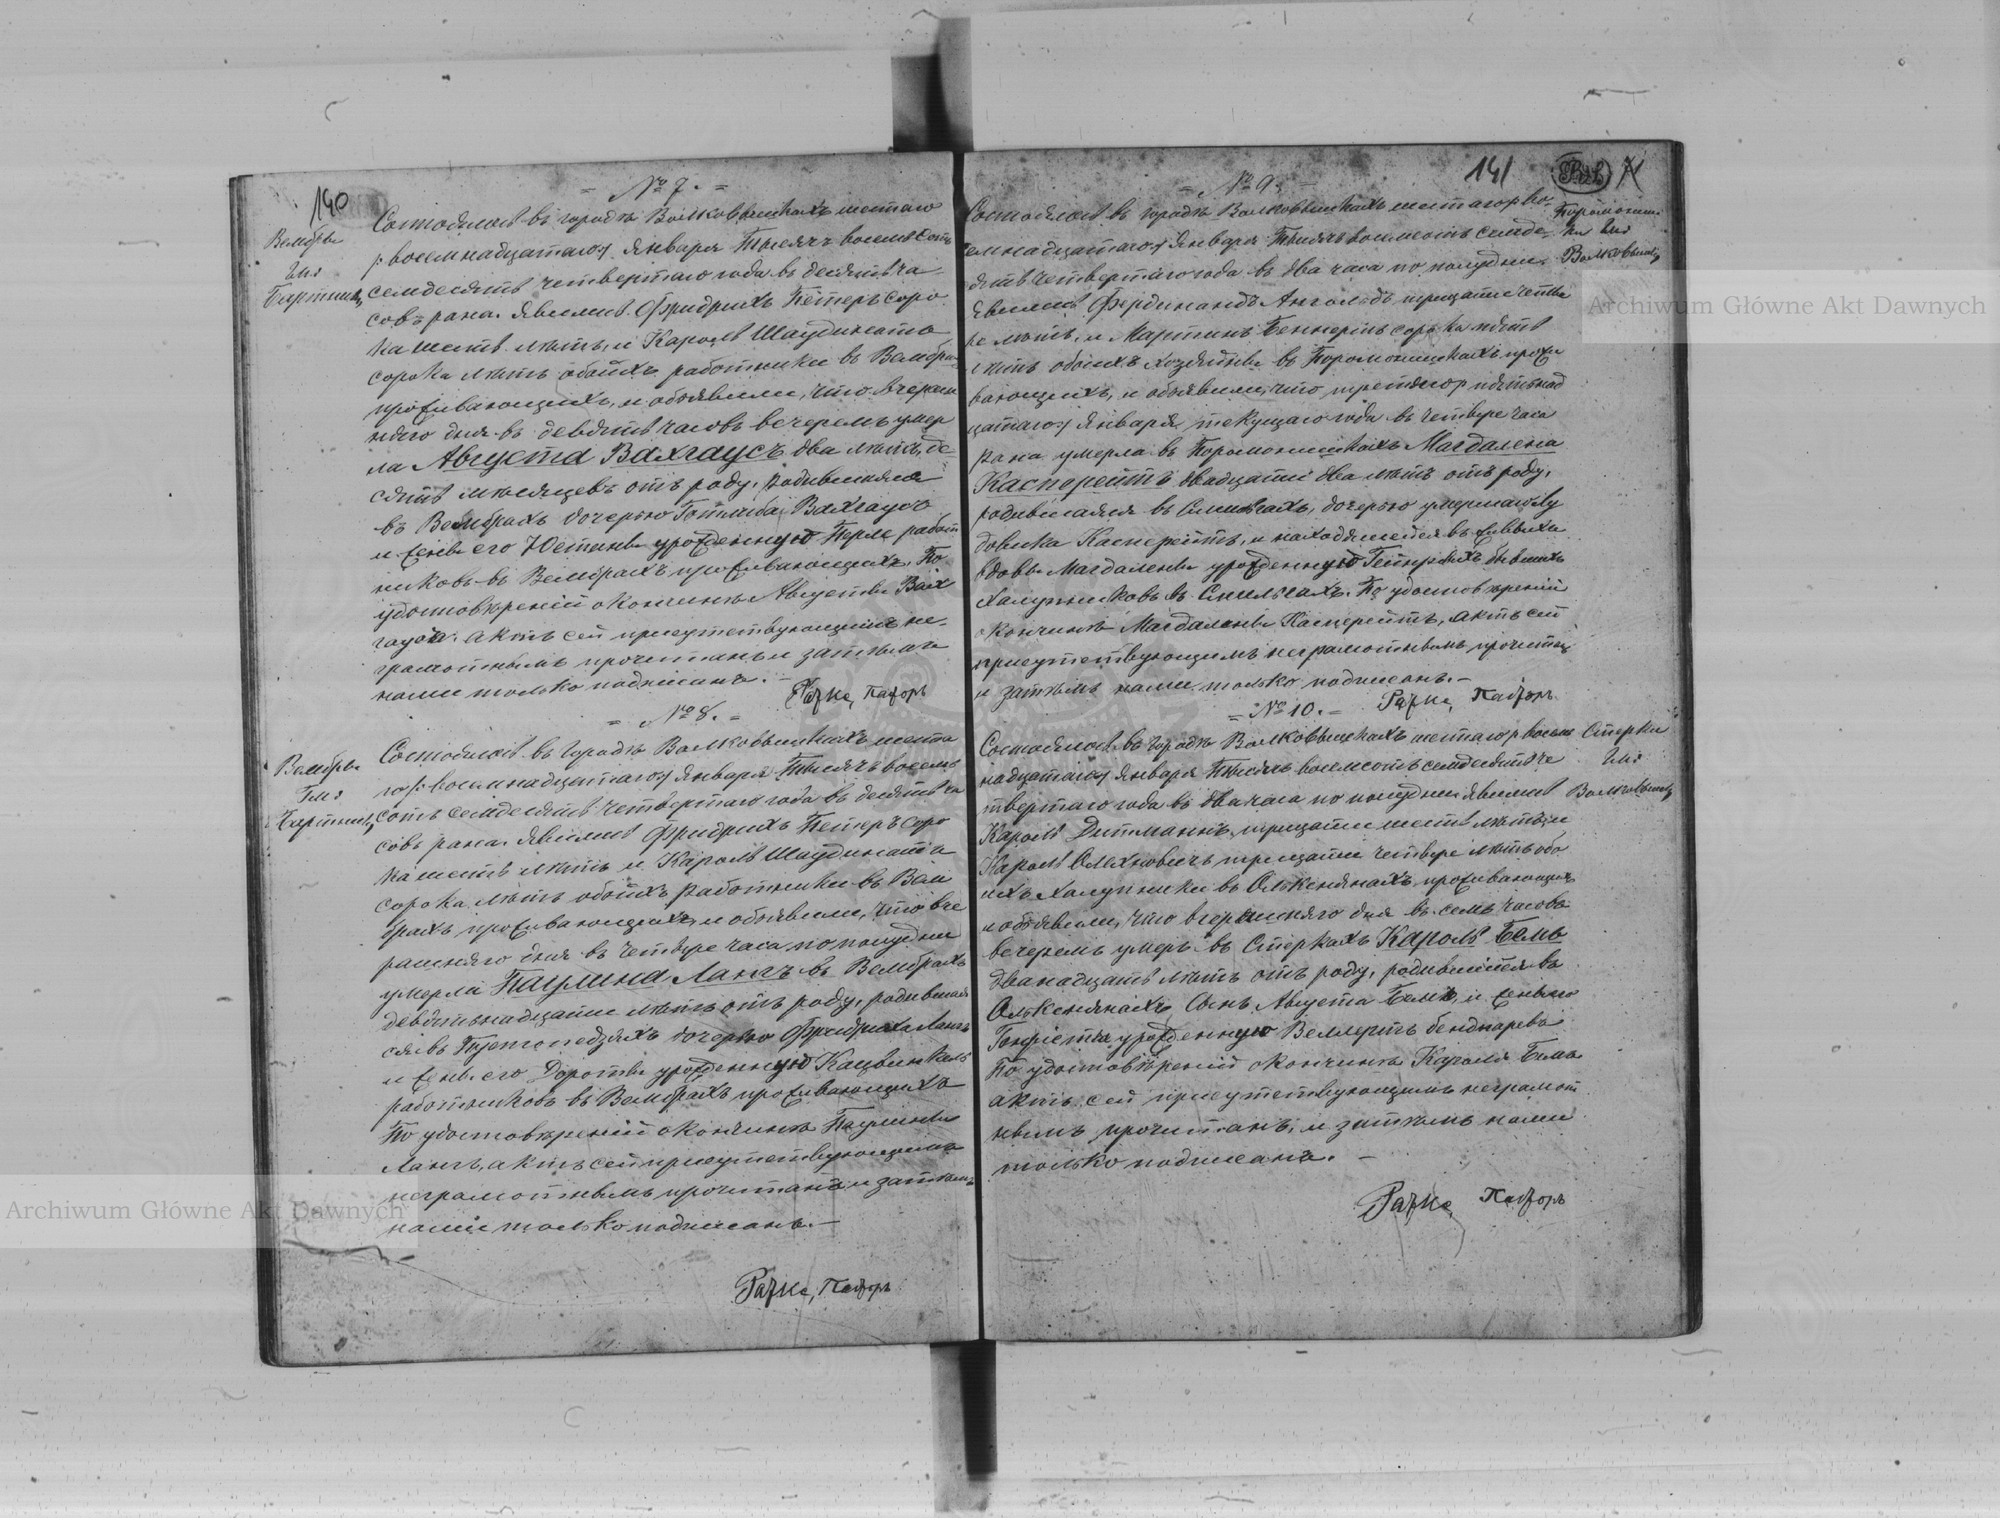 140
= № 7. =
Вембры
Гмз
Бартник
Состоялось въ городѣ Волковышкахъ шестаго
/: восемнадцатаго:/ Января Тысяча восемьсотъ
семдесятъ четвертаго года въ десять ча
совъ рана. Явились Фридрихъ Петеръ соро
ка шесть лѣтъ, и Кароль Шаудината
сорока лѣтъ обоихъ работники въ Вембра
проживающихъ, и объявили, что вчераш
няго дня въ девять часовъ вечеремъ умер
ла Августа Вахгаусъ два лѣтъ, де
сять мѣсяцевъ отъ роду, родившаяся
въ Вембрахъ дочерью Готлиба Вахгаусъ
и жены его Юстины урожденную Перле работ
никовъ въ Вембрахъ проживающихъ. По
удостовѣреніи окончинѣ Августы Вах
гаусъ. актъ сей присутствующимъ не-
грамотнымъ прочитанъ и затѣмъ
нами только подписанъ. –
Пасторъ
= № 8. =
Вембры
Гмз
Бартник
Состоялось въ городѣ Волковышкахъ шеста
го /: восемнадцатаго:/ Января Тысяча восемь
сотъ семдесятъ четвертаго года въ десять ча
совъ рана. Явились Фридрихъ Петеръ соро
ка шесть лѣтъ и Кароль Шаудината
сорока лѣтъ обоихъ работники въ Вем
брахъ проживающихъ, и объявили, что вче
рашняго дня въ четвере часа по полудни
умерла Паулина Лангъ въ Вембрахъ
девятьнадцати лѣтъ отъ роду, родившая
ся въ дочерью Фридриха Лангъ
и жены его Дороты урожденную
работниковъ въ Вембрахъ проживающихъ
По удостовѣреніи окончинѣ Паулины
Лангъ, актъ сей присутствующимъ
неграмотнымъ прочитанъ и затѣмъ
нами только подписанъ. –
Пасторъ
141
= № 9. =
Состоялось въ городѣ Волковышкахъ шестаго /: во-
семнадцатаго:/ Января Тысяча восемьсотъ семде-
сятъ четвертаго года въ два часа по полудни.
Явились Фердинандъ Ангольдъ тридцати четы
ре лѣтъ, и Мартинъ Беннертъ сорока пять
лѣтъ обоихъ хозяйны въ прожи
вающихъ, и объявили, что третягор пятьнад
цатаго:/ Января текущаго года въ четвере часа
рана умерла въ Магдалена
Касперейтъ двадцати два лѣтъ отъ роду,
родившаяся въ дочерью умершаго Лу
довика Касперейтъ, и находящейся въ живыхъ
вдовы Магдалены урожденную бывшихъ
халупниковъ въ По удостовѣреніи
окончинѣ Магдалены Касперейтъ, актъ сей
присутствующимъ неграмотнымъ прочитанъ
и затѣмъ нами только подписанъ. –
Волковышк
Пасторъ
= № 10. =
Стерки
Гмз
Волковышк
Состоялось въ городѣ Волковышкахъ шестаго /: восем
надцатаго:/ Января Тысяча восемьсотъ семдесятъ че
твертаго года въ два часа по полудни Явились
Кароль Дитманнъ, тридцати шесть лѣтъ, и
Кароль Олехновичъ тридцати четвере лѣтъ обо
ихъ халупники въ Олькснянахъ проживающихъ
и объявили, что вчерашняго дня въ семь часовъ
вечеремъ умеръ въ Стеркахъ Кароль Бемъ
дванадцать лѣтъ отъ роду, родившійся въ
Олькснянахъ Сынъ Августа Бемъ, и жены его
Генріеты урожденную Веллертъ
По удостовѣреніи окончинѣ Кароля Бемъ
актъ сей присутствующимъ неграмот
нымъ прочитанъ, и затѣмъ нами
только подписанъ. –
Пасторъ
Archiwum Główne Akt Dawnych
Archiwum Główne Akt Dawnych